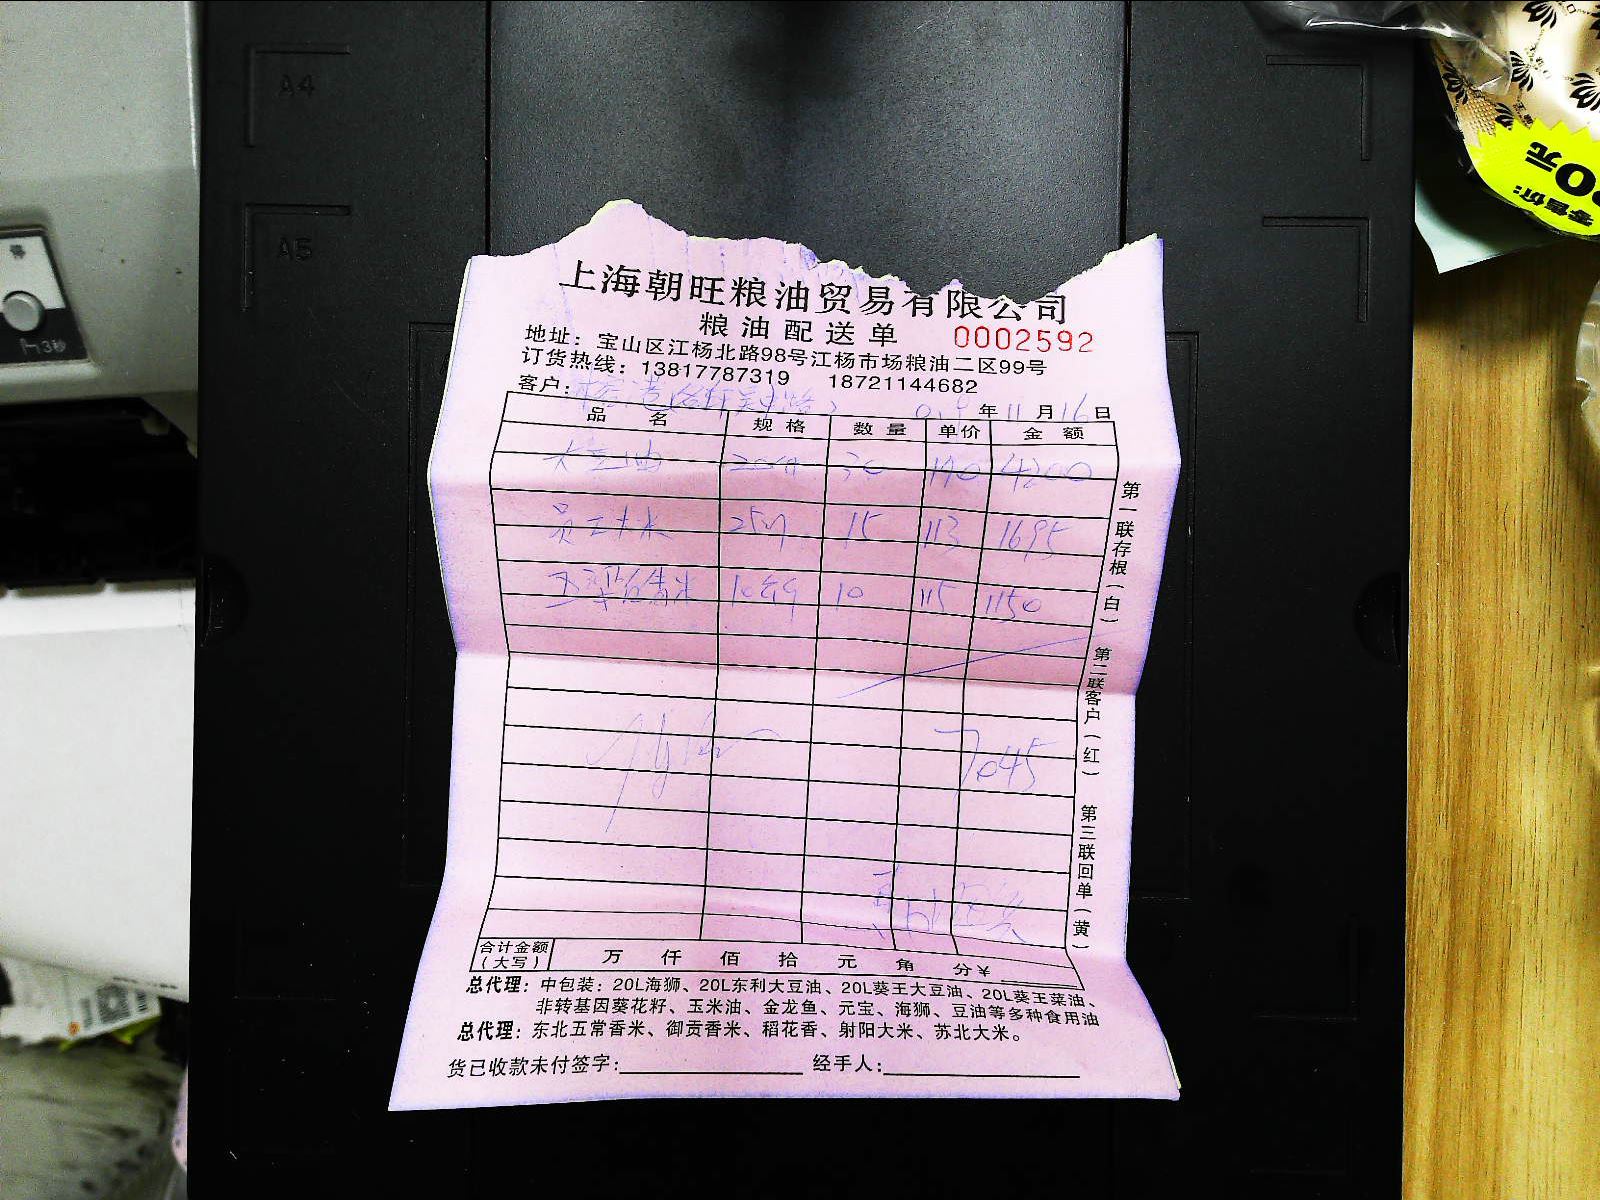 A4
A5
零售价:
元
上海朝旺粮油贸易有限公司
粮油配送单 0002592
地址：宝山区江杨北路98号江杨市场粮油二区99号
订货热线：13817787319 18721144682
客户： 年 11 月 16 日
品名 规格 数量 单价 金额
大豆油 30 4200
员工大米 15 113 1695
香米 10 115 1150
7045
合计金额（大写） 万 仟 佰 拾 元 角 分￥
第一联存根（白）
第二联客户（红）
第三联回单（黄）
总代理：中包装：20L海狮、20L东利大豆油、20L葵王大豆油、20L葵王菜油、
非转基因葵花籽、玉米油、金龙鱼、元宝、海狮、豆油等多种食用油
总代理：东北五常香米、御贡香米、稻花香、射阳大米、苏北大米。
货已收款未付签字： 经手人：